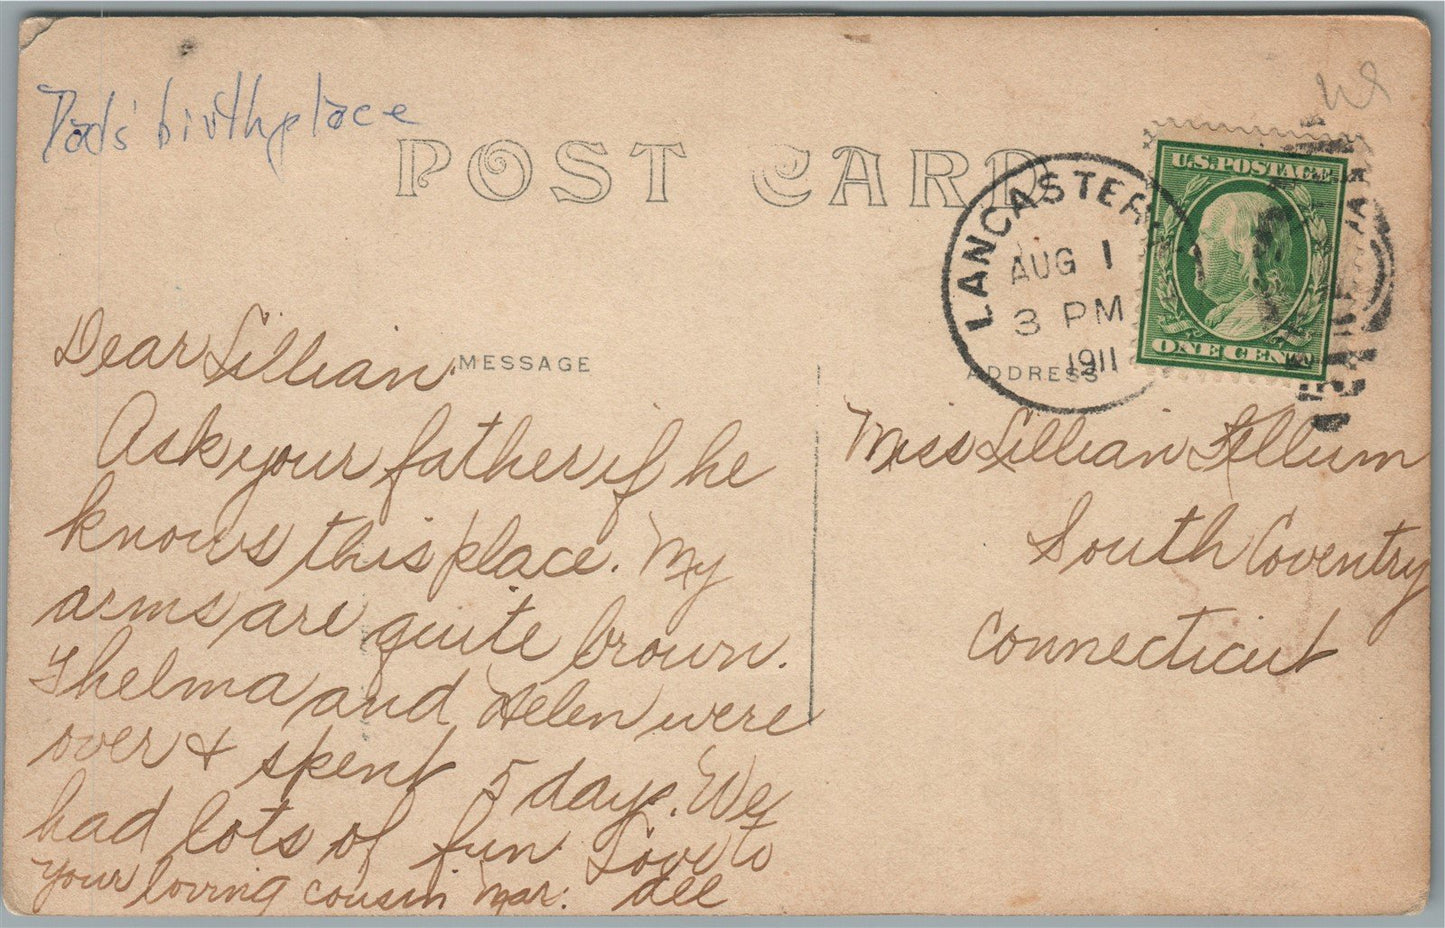 Dad's birthplace
POST CARD
U.S. POSTAGE
ONE CENT
LANCASTER
AUG 1
3 PM
1911
MESSAGE
Dear Lillian
Ask your father if he
knows this place. My
arms are quite brown.
Thelma and Helen were
over & spent 5 days. We
had lots of fun. Love to
all
your loving cousin Mar.
ADDRESS
Miss Lillian
South Coventry
Connecticut